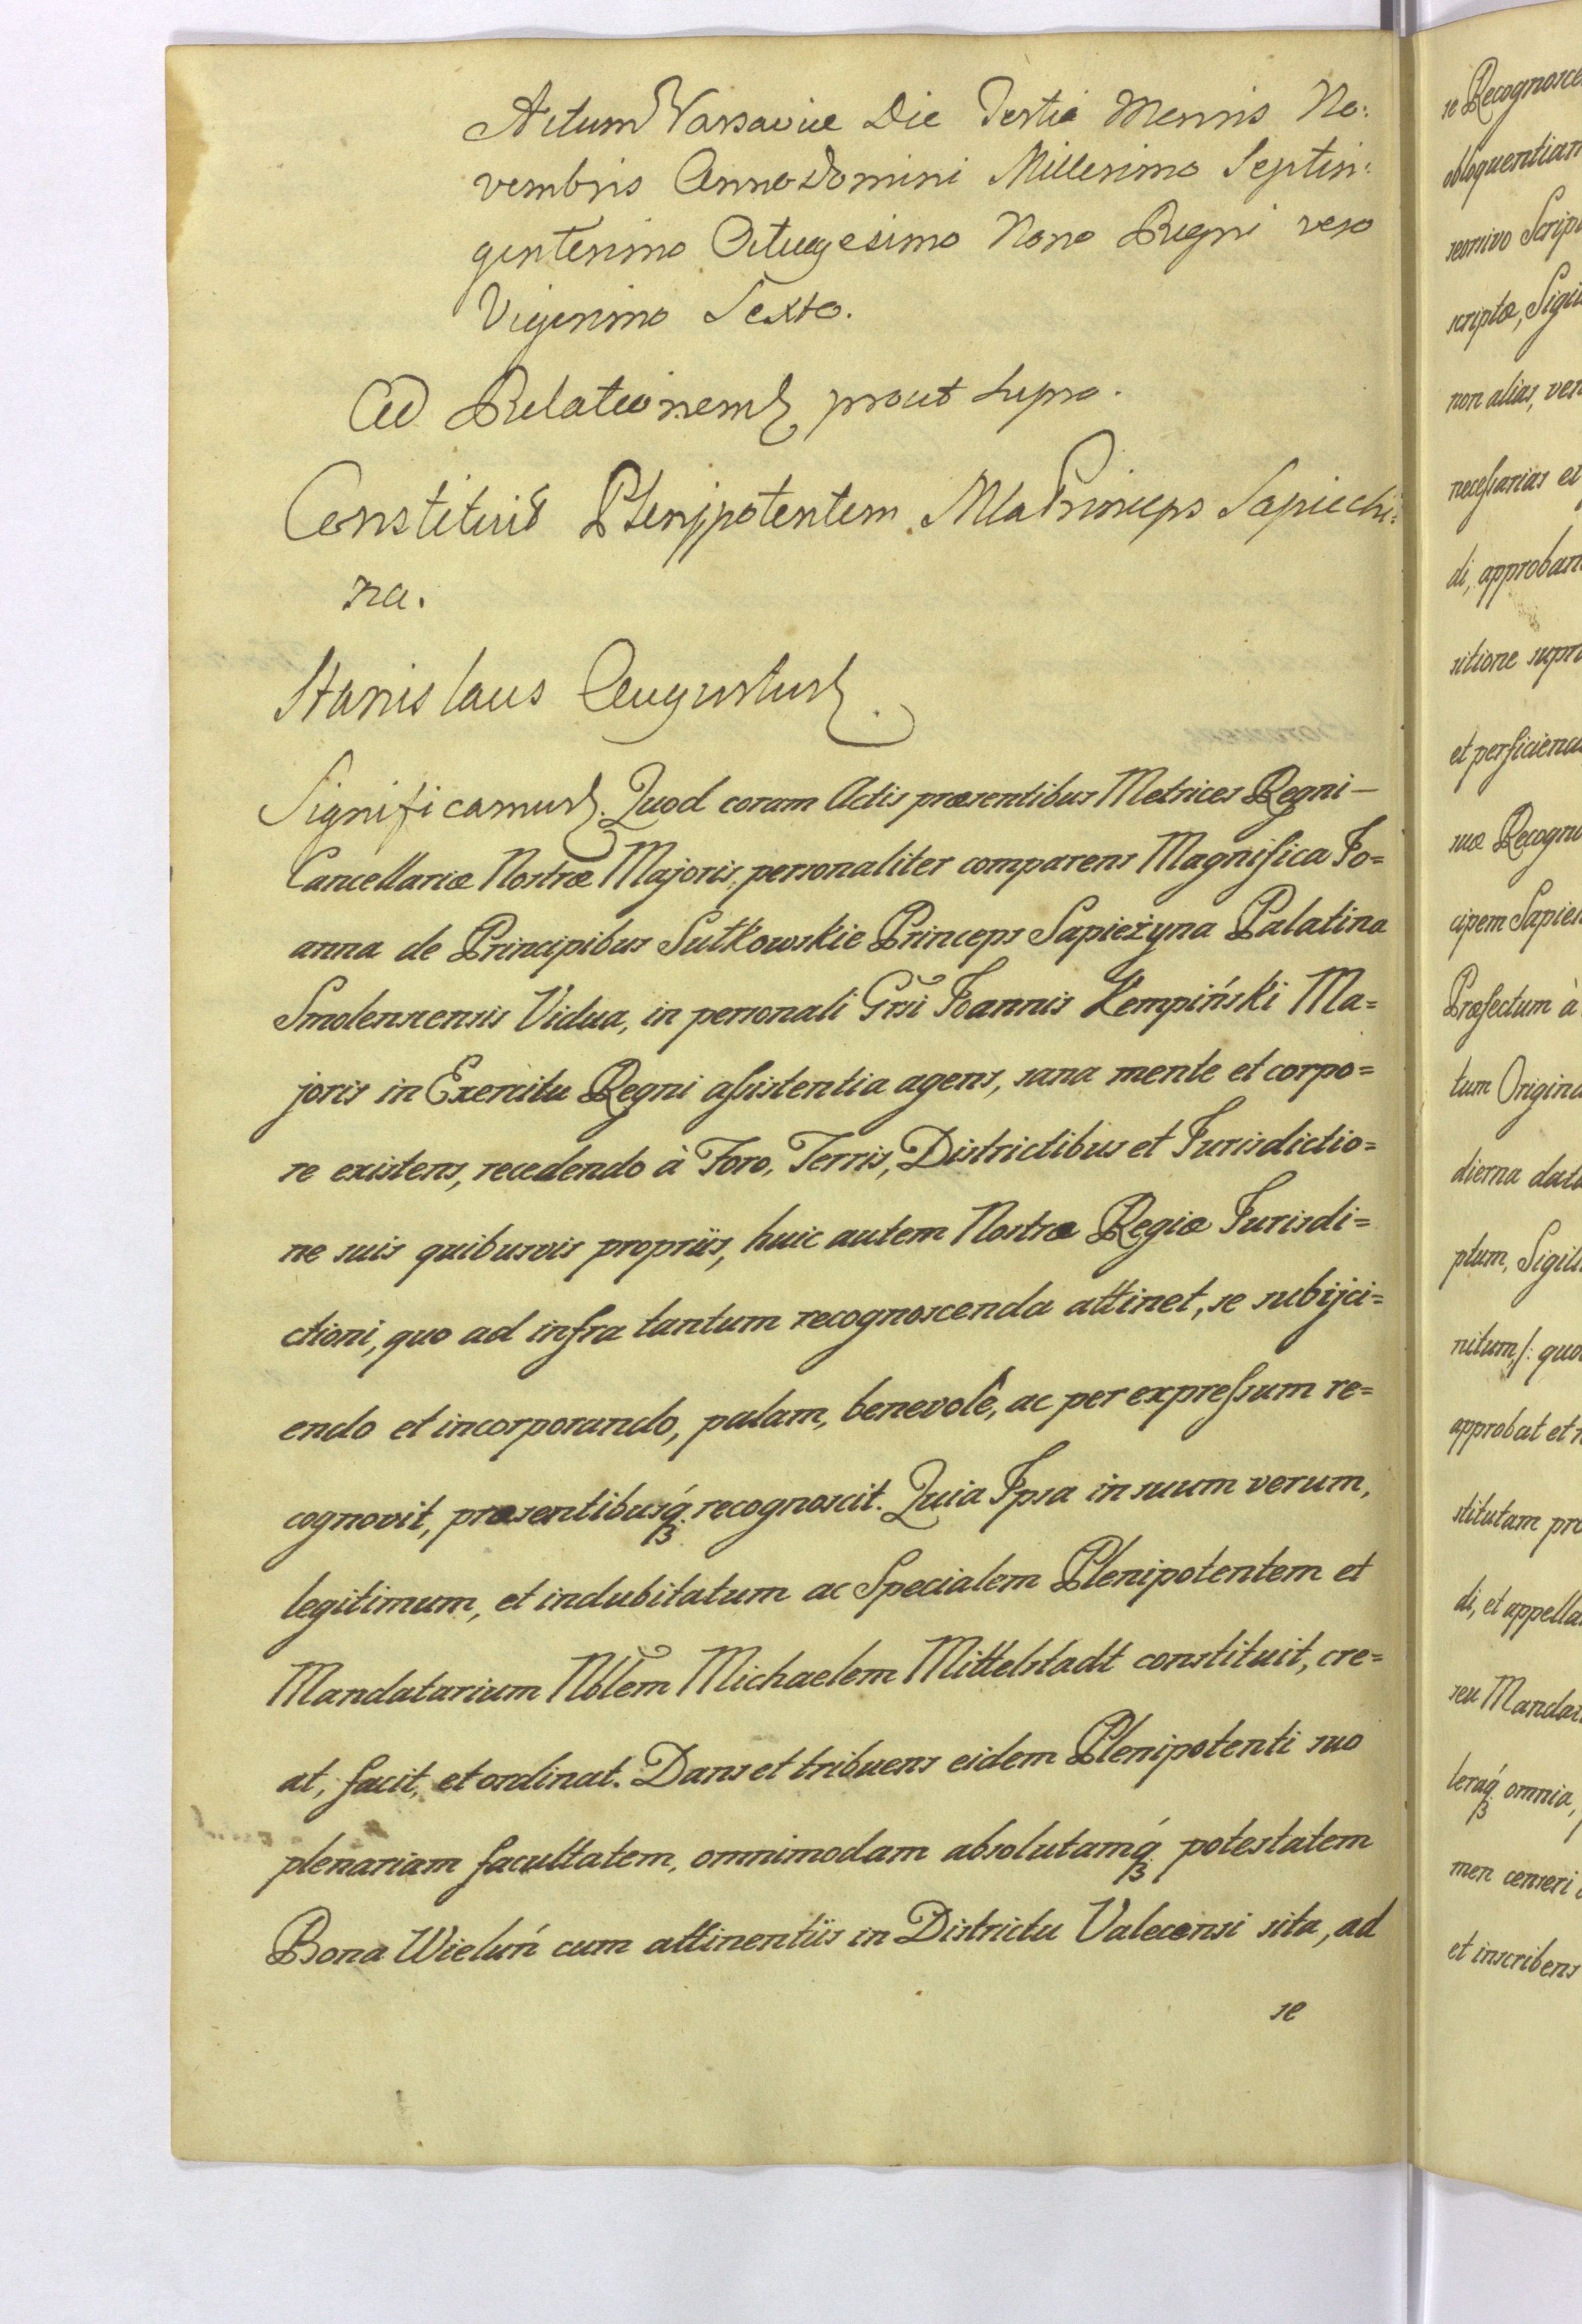 Actum Varsaviæ Die Tertia Mensis No:
vembris Anno Domini Millesimo Septin:
gentesimo Octuagesimo Nono Regni vero
Vigesimo Sexto.
Ad Relationem prout supra.
Constituit Plenipotentem Mca Princeps Sapiechi:
na.
Stanislaus Augustus.
Significamus. Quod coram Actis præsentibus Metrices Regni —
Cancellariæ Nostræ Majoris, personaliter comparens Magnifica Jo=
anna de Principibus Sułkowskie Princeps Sapieżyna Palatina
Smolenscensis Vidua, in personali Grsi Joannis Kempiński Ma=
joris in Exercitu Regni assistentia agens, sana mente et corpo=
re existens, recedendo à Foro, Terris, Districtibus et Jurisdictio=
ne suis quibusvis propriis, huic autem Nostræ Regiæ Jurisdi=
ctioni, quo ad infra tantum recognoscenda attinet, se subijci=
endo et incorporando, palam, benevolê, ac per expressum re=
cognovit, præsentibusq́ꝫ recognoscit. Quia Ipsa in suum verum,
legitimum, et indubitatum ac Specialem Plenipotentem et
Mandatarium Nblem Michaelem Mittelstadt constituit, cre=
at, facit, et ordinat. Dans et tribuens eidem Plenipotenti suo
plenariam facultatem, omnimodam absolutamq́ꝫ potestatem
Bona Wieluń cum attinentiis in Districtu Valecensi sita, ad
se
se Recognosce
obloquentiam
scripto, Sigil
non alias, ver
necessarias et
di, approban
sitione supra
et perficiend
suo Recogno
cipem Sapie
Præfectum à
tum Origina
dierna data
ptum, Sigill
nitum /: quo
approbat et r
stitutam pro
di, et appella
seu Manda
teraq́ꝫ omnia,
men censeri
et inscribens